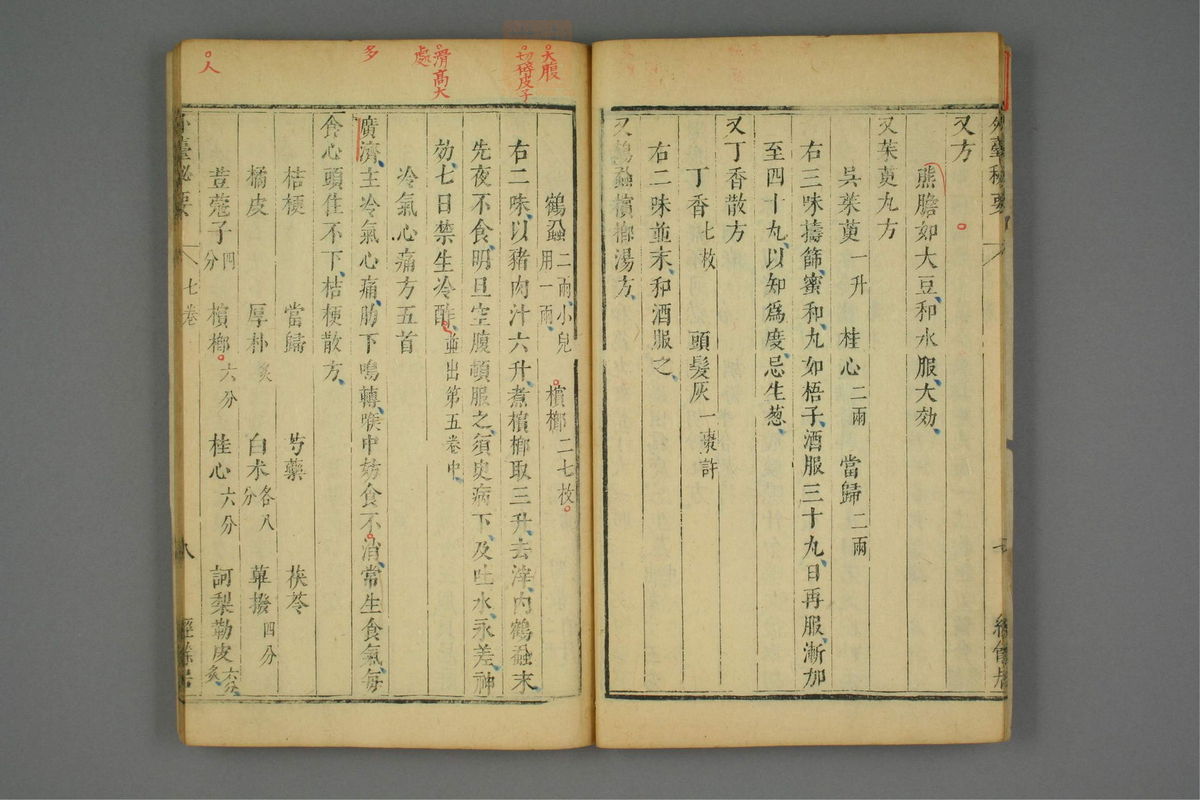 又方
熊膽如大豆和水服大効
又茱萸丸方
吳茱萸一升 桂心二兩 當歸二兩
右三味擣篩蜜和丸如梧子酒服三十丸日再服漸加
至四十丸以知爲度忌生葱
又丁香散方
丁香七枚 頭髮灰一棗許
右二味並末和酒服之
又鶴蝨檳榔湯方
大腹
切碎皮子
滑高大
處
多
人
鶴蝨二兩小兒用一兩 檳榔二七枚
右二味以豬肉汁六升煮檳榔取三升去滓内鶴蝨末
先夜不食明旦空腹頓服之須臾病下及吐水永差神
効七日禁生冷酢並出第五卷中
冷氣心痛方五首
廣濟主冷氣心痛肋下鳴轉喉中妨食不消常生食氣每
食心頭住不下桔梗散方
桔梗 當歸 芍藥 茯苓
橘皮 厚朴炙 白朮各八分 蓽撥四分
荳蔻子四分 檳榔六分 桂心六分 訶梨勒皮六分炙
外臺秘要 七卷 八 經餘居